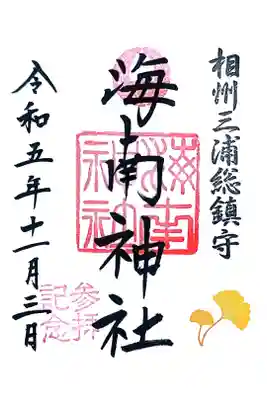 相州三浦総鎮守
海南神社
海南神社
参拝
記念
令和五年十一月三日